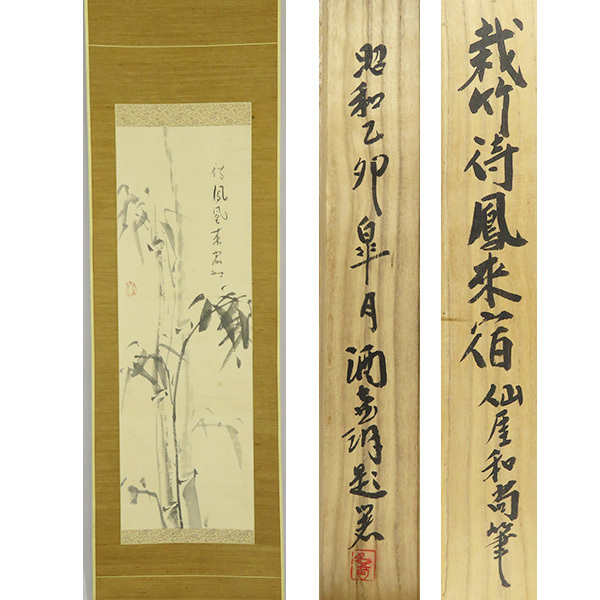 待鳳凰来宿
昭和乙卯皐月
題署
栽竹待鳳來宿 仙厓和尚筆